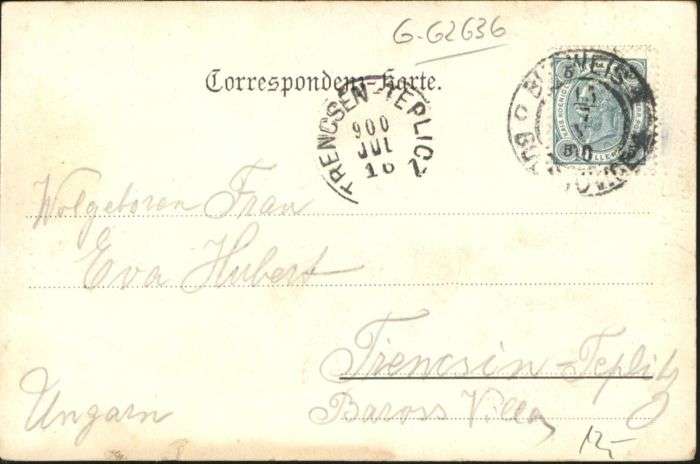 G-G2636
Correspondenz-Karte.
TRENCSEN-TEPLICZ
900
JUL
16
BUDWEIS
Wolgeboren Frau
Eva Hubert
Trencsin-Teplitz
Ungarn
Baross Villa
12,-